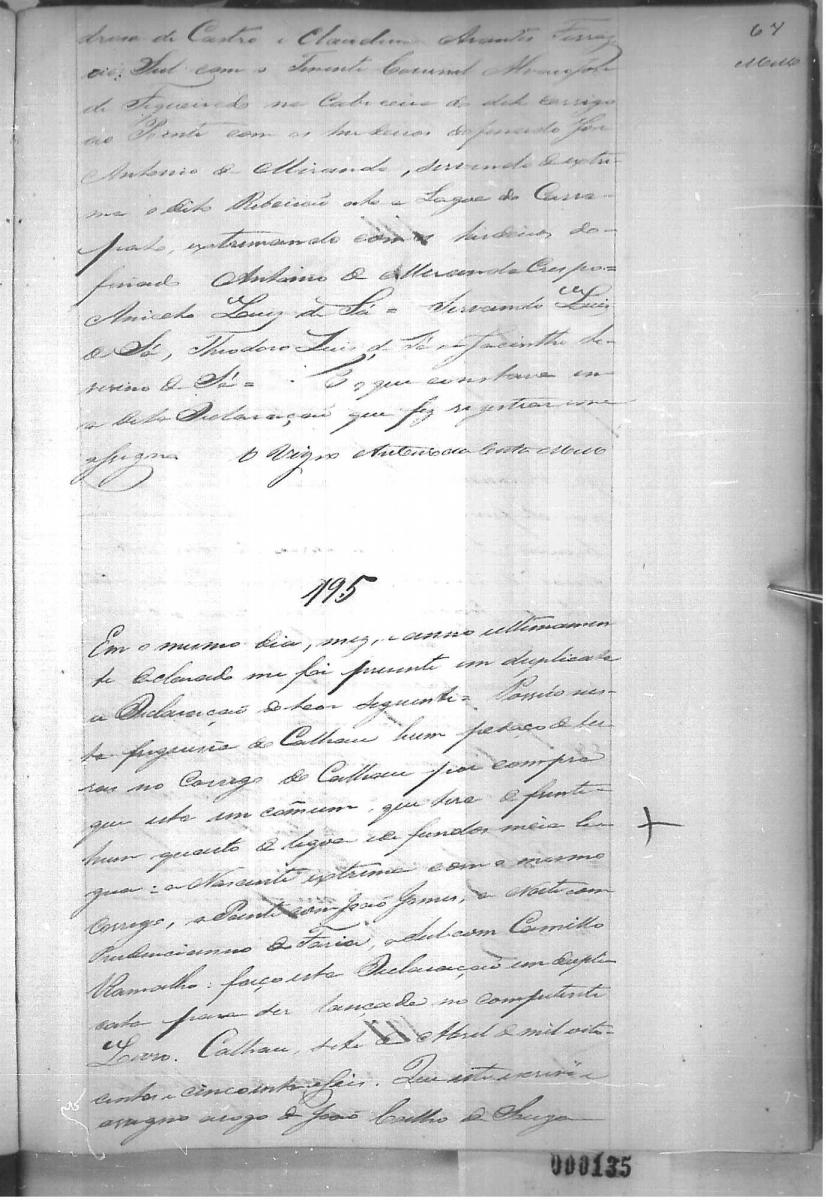 67
Mello
drosa de Castro e Claudino Arantes Ferraz
Sul com o Tenente Coronel Alvaro José
de Figueiredo na Cabiceira do dito corrigo
ao Poente com os herdeiros do finado José
Antonio de Miranda, servindo de extre-
ma o dito Ribeirão ate a Lagoa do Carra-
pato, extremando com os herdeiros do
finado Antonio de Miranda Crespo=
Aniceto Luiz de Sá = Servando Luis
de Sá, Theodoro Luis de Sá = Jacintho Se-
verino de Sá = E o que constava em
a dita Declaração que fez registrar e me
assigno O Vigro Antonio da Costa Mello
195
Em o mesmo dia, mez, e anno ultimamen
te declarado me foi presente em duplicata
a Declaração do teor seguinte = Possúo nes-
ta freguesia de Calhau hum pedaço de ter
ras no Corrego do Calhau por compra
que esta em cõmum, que terá de frente
hum quarto de legoa e de fundos meia le
goa: a Nascente extrema com o mesmo
Corrego, o Poente com João Gomes, o Norte com
Prudencianno de Faria, o Sul com Camillo
Ramalho: faço esta Declaração em dupli-
cata para ser lançada no competente
Livro. Calhau, sete de Abril de mil oito
centos e cincoenta e seis. Que este escrivi e
assigno arogo de João Coelho de Souza
000135